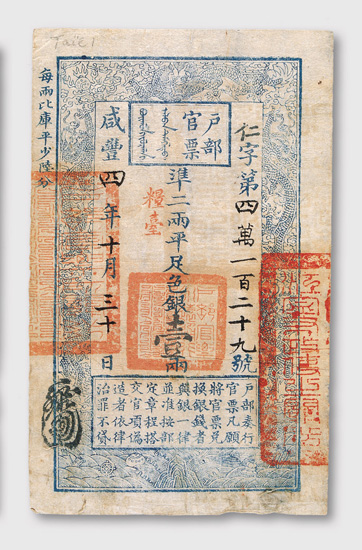 Tael 1
户部
官票
仁字第四萬一百二十九號
準二兩平足色銀壹兩
糧臺
咸豐四年十月三十日
每兩比庫平少陸分
户部奏行
官票凡願
將官票兌
換銀錢者
與銀一律
並准按部
定章程搭
交官項偽
造者依律
治罪不貸